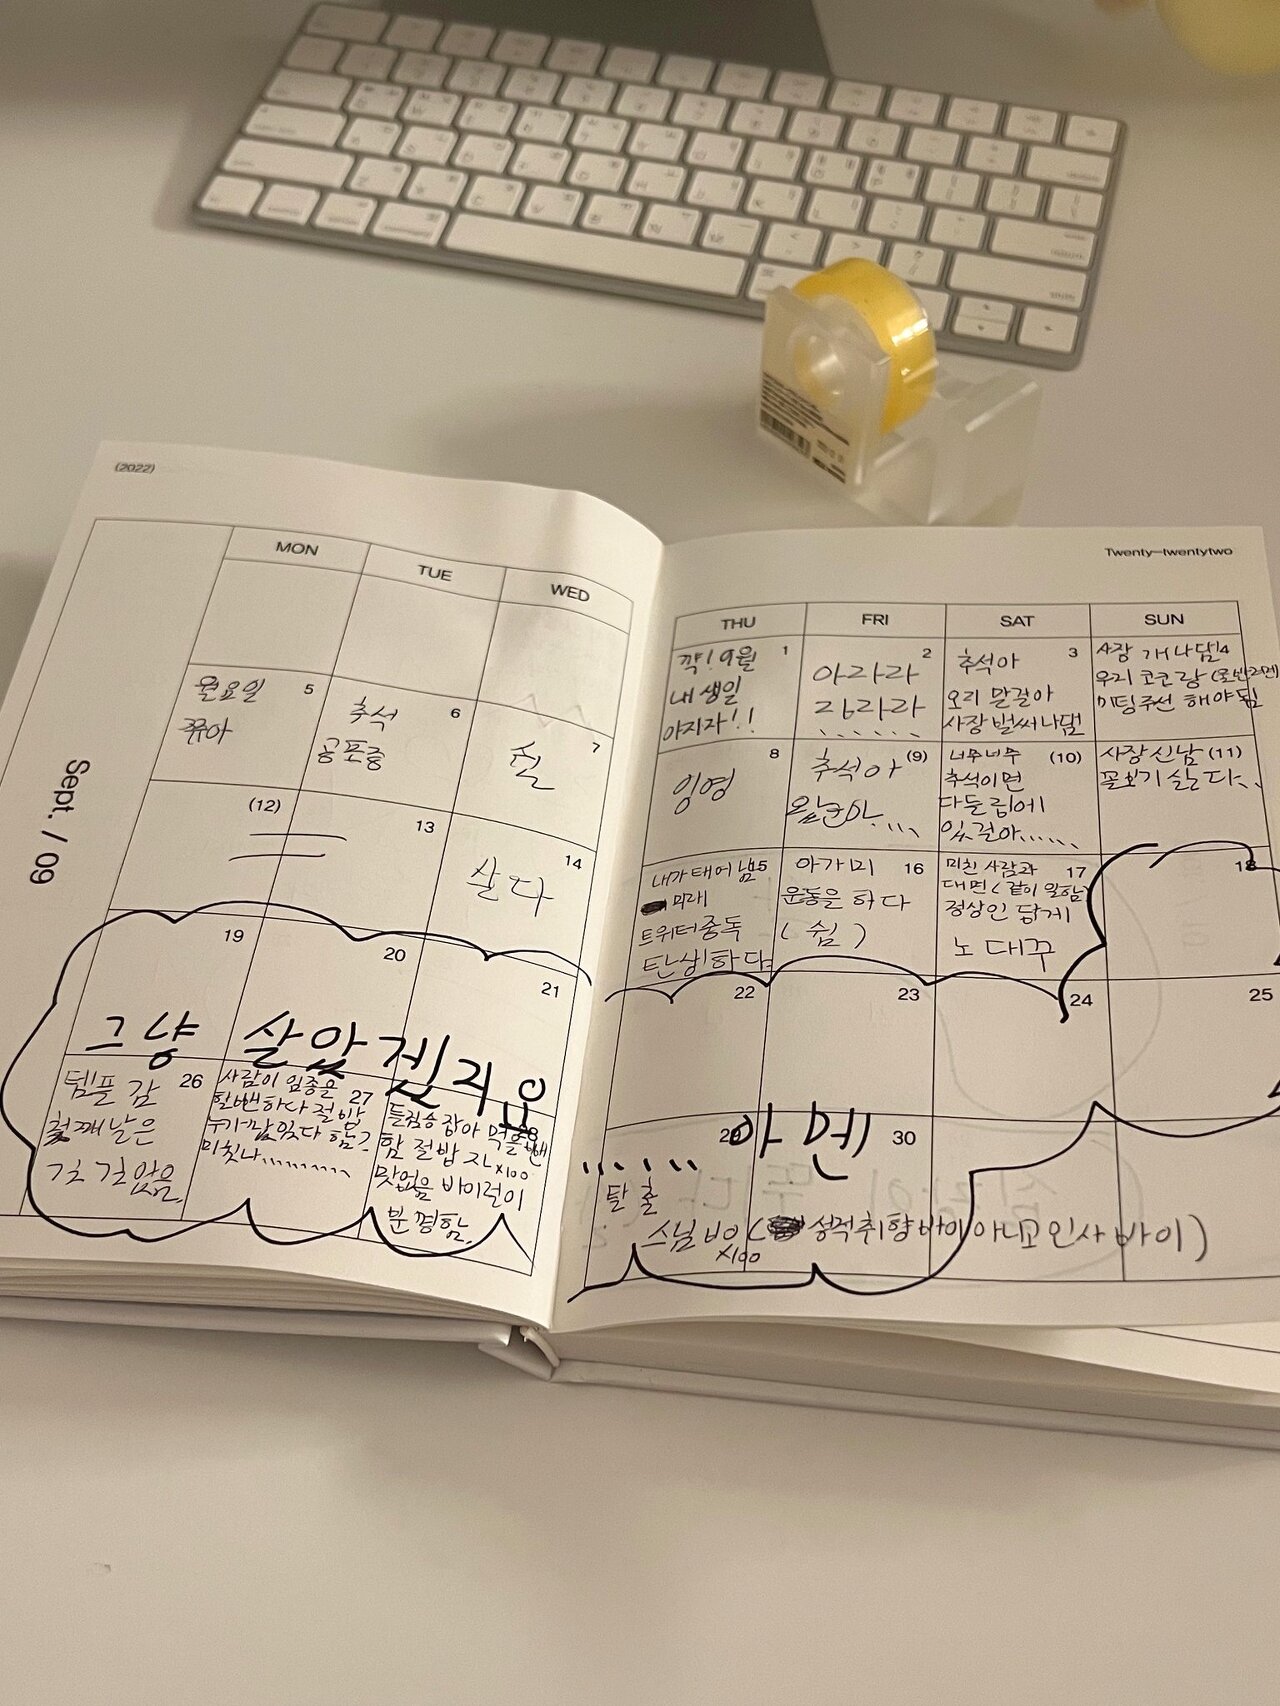 (2022)
Twenty-twentytwo
Sept. / 09
MON
TUE
WED
THU
FRI
SAT
SUN
1
꺅! 9월
내 생일
아지자!!
2
아라라
라라
......
3
추석아
오리 말걸아
사장 벌써 나덞
4
사장 개나덞
우리 코코랑
미팅주선 해야됨
5
월요일
6
추석
공포증
7
8
잉영
(9)
추석아
(10)
너무너무
추석이면
다들 립에
있걸아......
(11)
사장 신남
꼴보기 싫다..
(12)
13
14
살다
내가 태어남
미래
트위터중독
탄생하다
16
아가미
운동을 하다
(쉼)
17
미친 사람과
대면(같이 일함)
정상인 답게
노 대꾸
18
19
20
21
22
23
24
25
그냥 살았겠지요
......
아멘
26
템플 감
첫째날은
27
사람이 임종을
할뻔하다 절밥
누가 맛있다 함?
미칫나..........
들짐승 잡아 먹을뻔
함 절밥 x100
맛없음 바이럴이
분명함.
29
탈출
스님 x100 ( 성적취향바이아니고인사바이)
30